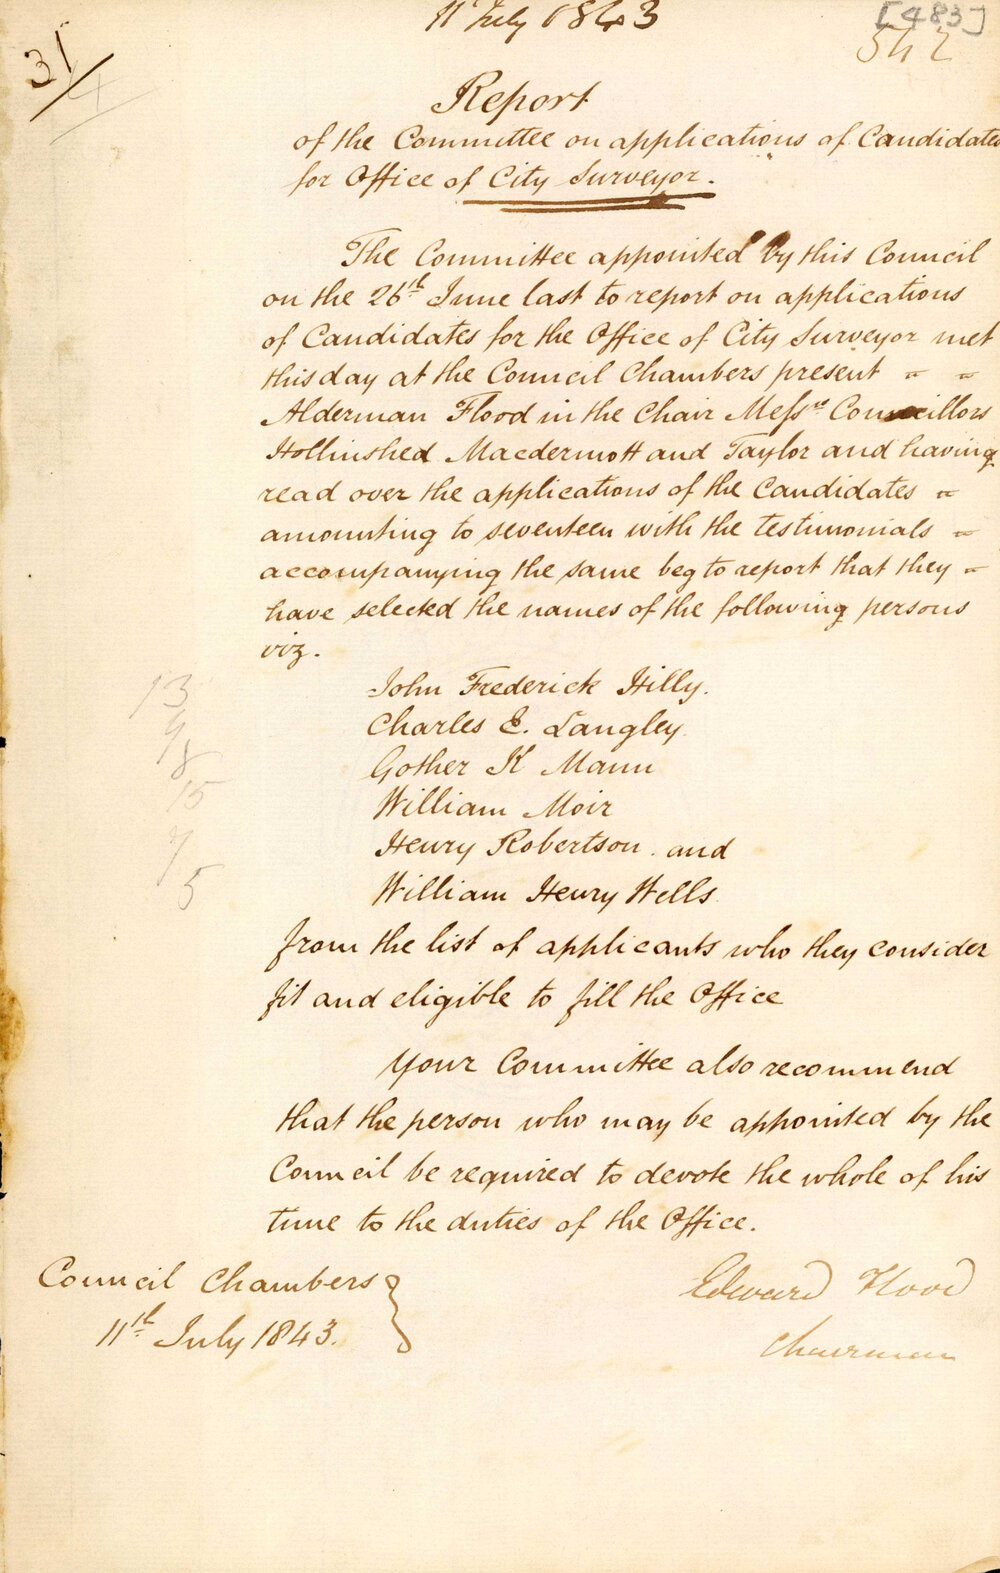 11 July 1843
[483]
542
31/
4
Report
of the Committee on applications of Candidates
for Office of City Surveyor.
The Committee appointed by this Council
on the 26th June last to report on applications
of Candidates for the Office of City Surveyor met
this day at the Council Chambers present " "
Alderman Flood in the Chair Messrs Councillors
Hollinshed Macdermott and Taylor and having
read over the applications of the Candidates "
amounting to seventeen with the testimonials "
accompanying the same beg to report that they "
have selected the names of the following persons
viz.
13 John Frederick Hilly.
9 Charles E. Langley
8 Gother K Mann
15 William Moir
7 Henry Robertson and
5 William Henry Wells
from the list of applicants who they consider
fit and eligible to fill the Office
Your Committee also recommend
that the person who may be appointed by the
Council be required to devote the whole of his
time to the duties of the Office.
Council Chambers }
11th July 1843.
Edward Flood
Chairman